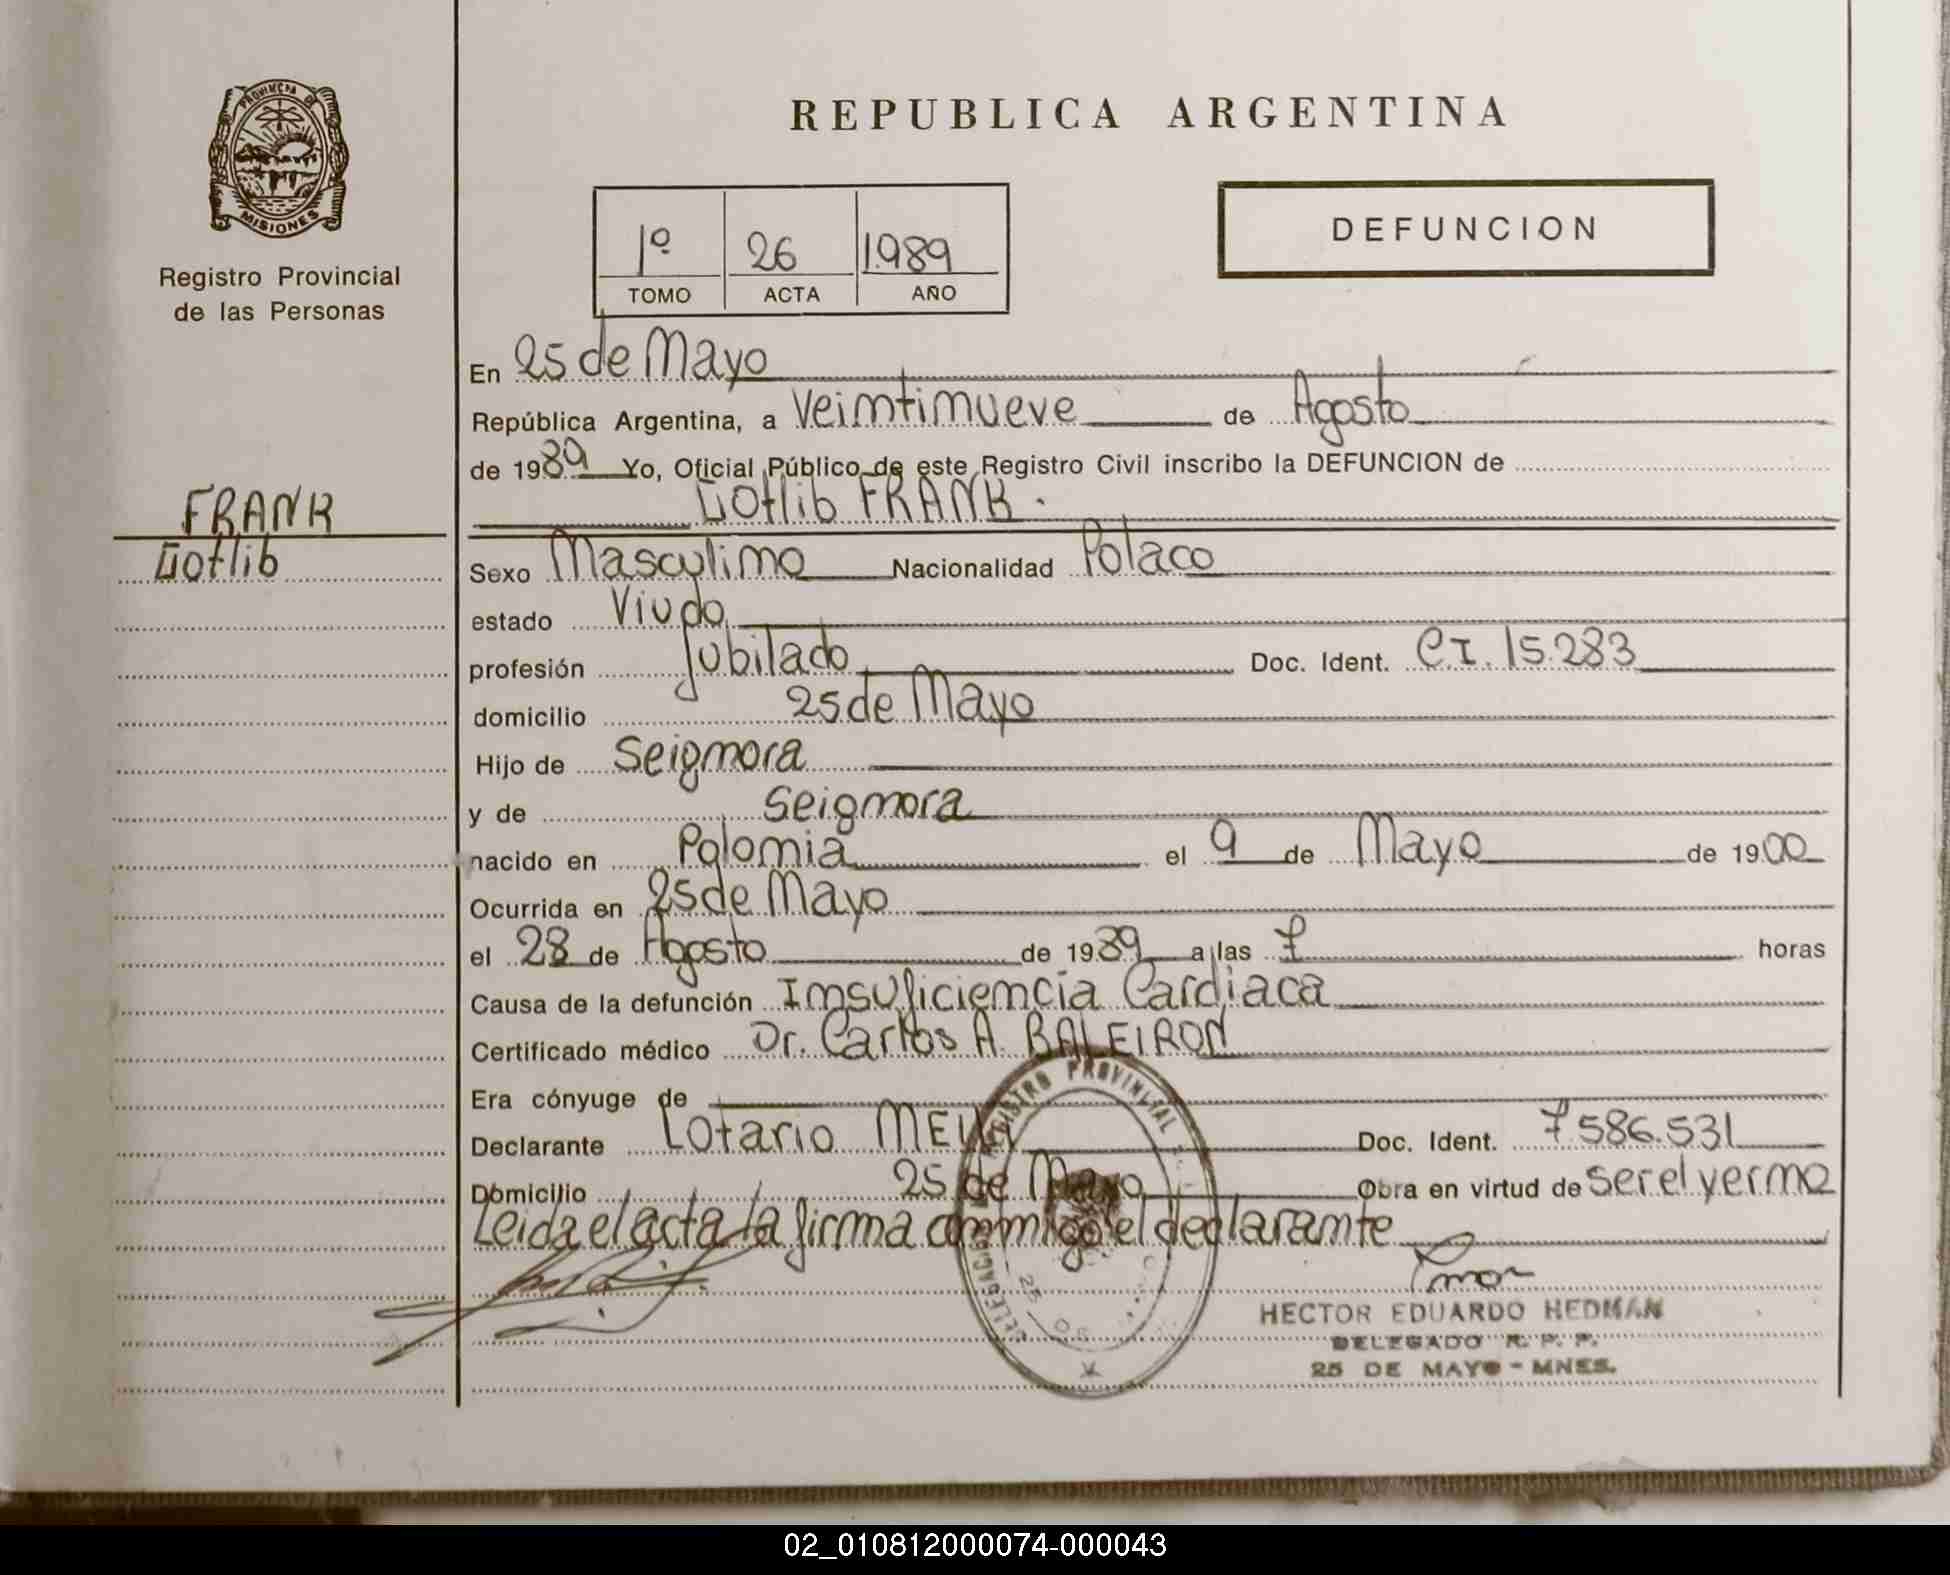 PROVINCIA DE
MISIONES
Registro Provincial
de las Personas
FRANK
Gotlib
REPUBLICA ARGENTINA
1º 26 1989
TOMO ACTA AÑO
DEFUNCION
En 25 de Mayo
República Argentina, a Veintinueve de Agosto
de 1989 Yo, Oficial Público de este Registro Civil inscribo la DEFUNCION de
Gotlib FRANK.
Sexo Masculino Nacionalidad Polaco
estado Viudo
profesión Jubilado Doc. Ident. C.I. 15.283
domicilio 25 de Mayo
Hijo de Seignora
y de Seignora
nacido en Polonia el 9 de Mayo de 1900
Ocurrida en 25 de Mayo
el 28 de Agosto de 1989 a las 7 horas
Causa de la defunción Insuficiencia Cardiaca
Certificado médico Dr. Carlos A. BALEIRON
Era cónyuge de
Declarante Lotario Doc. Ident. 7586.531
Domicilio 25 de Mayo Obra en virtud de ser el yerno
Leida el acta la firma conmigo el declarante
REGISTRO PROVINCIAL
25 DE
HECTOR EDUARDO HEDMAN
DELEGADO R. P. P.
25 DE MAYO - MNES.
02_010812000074-000043